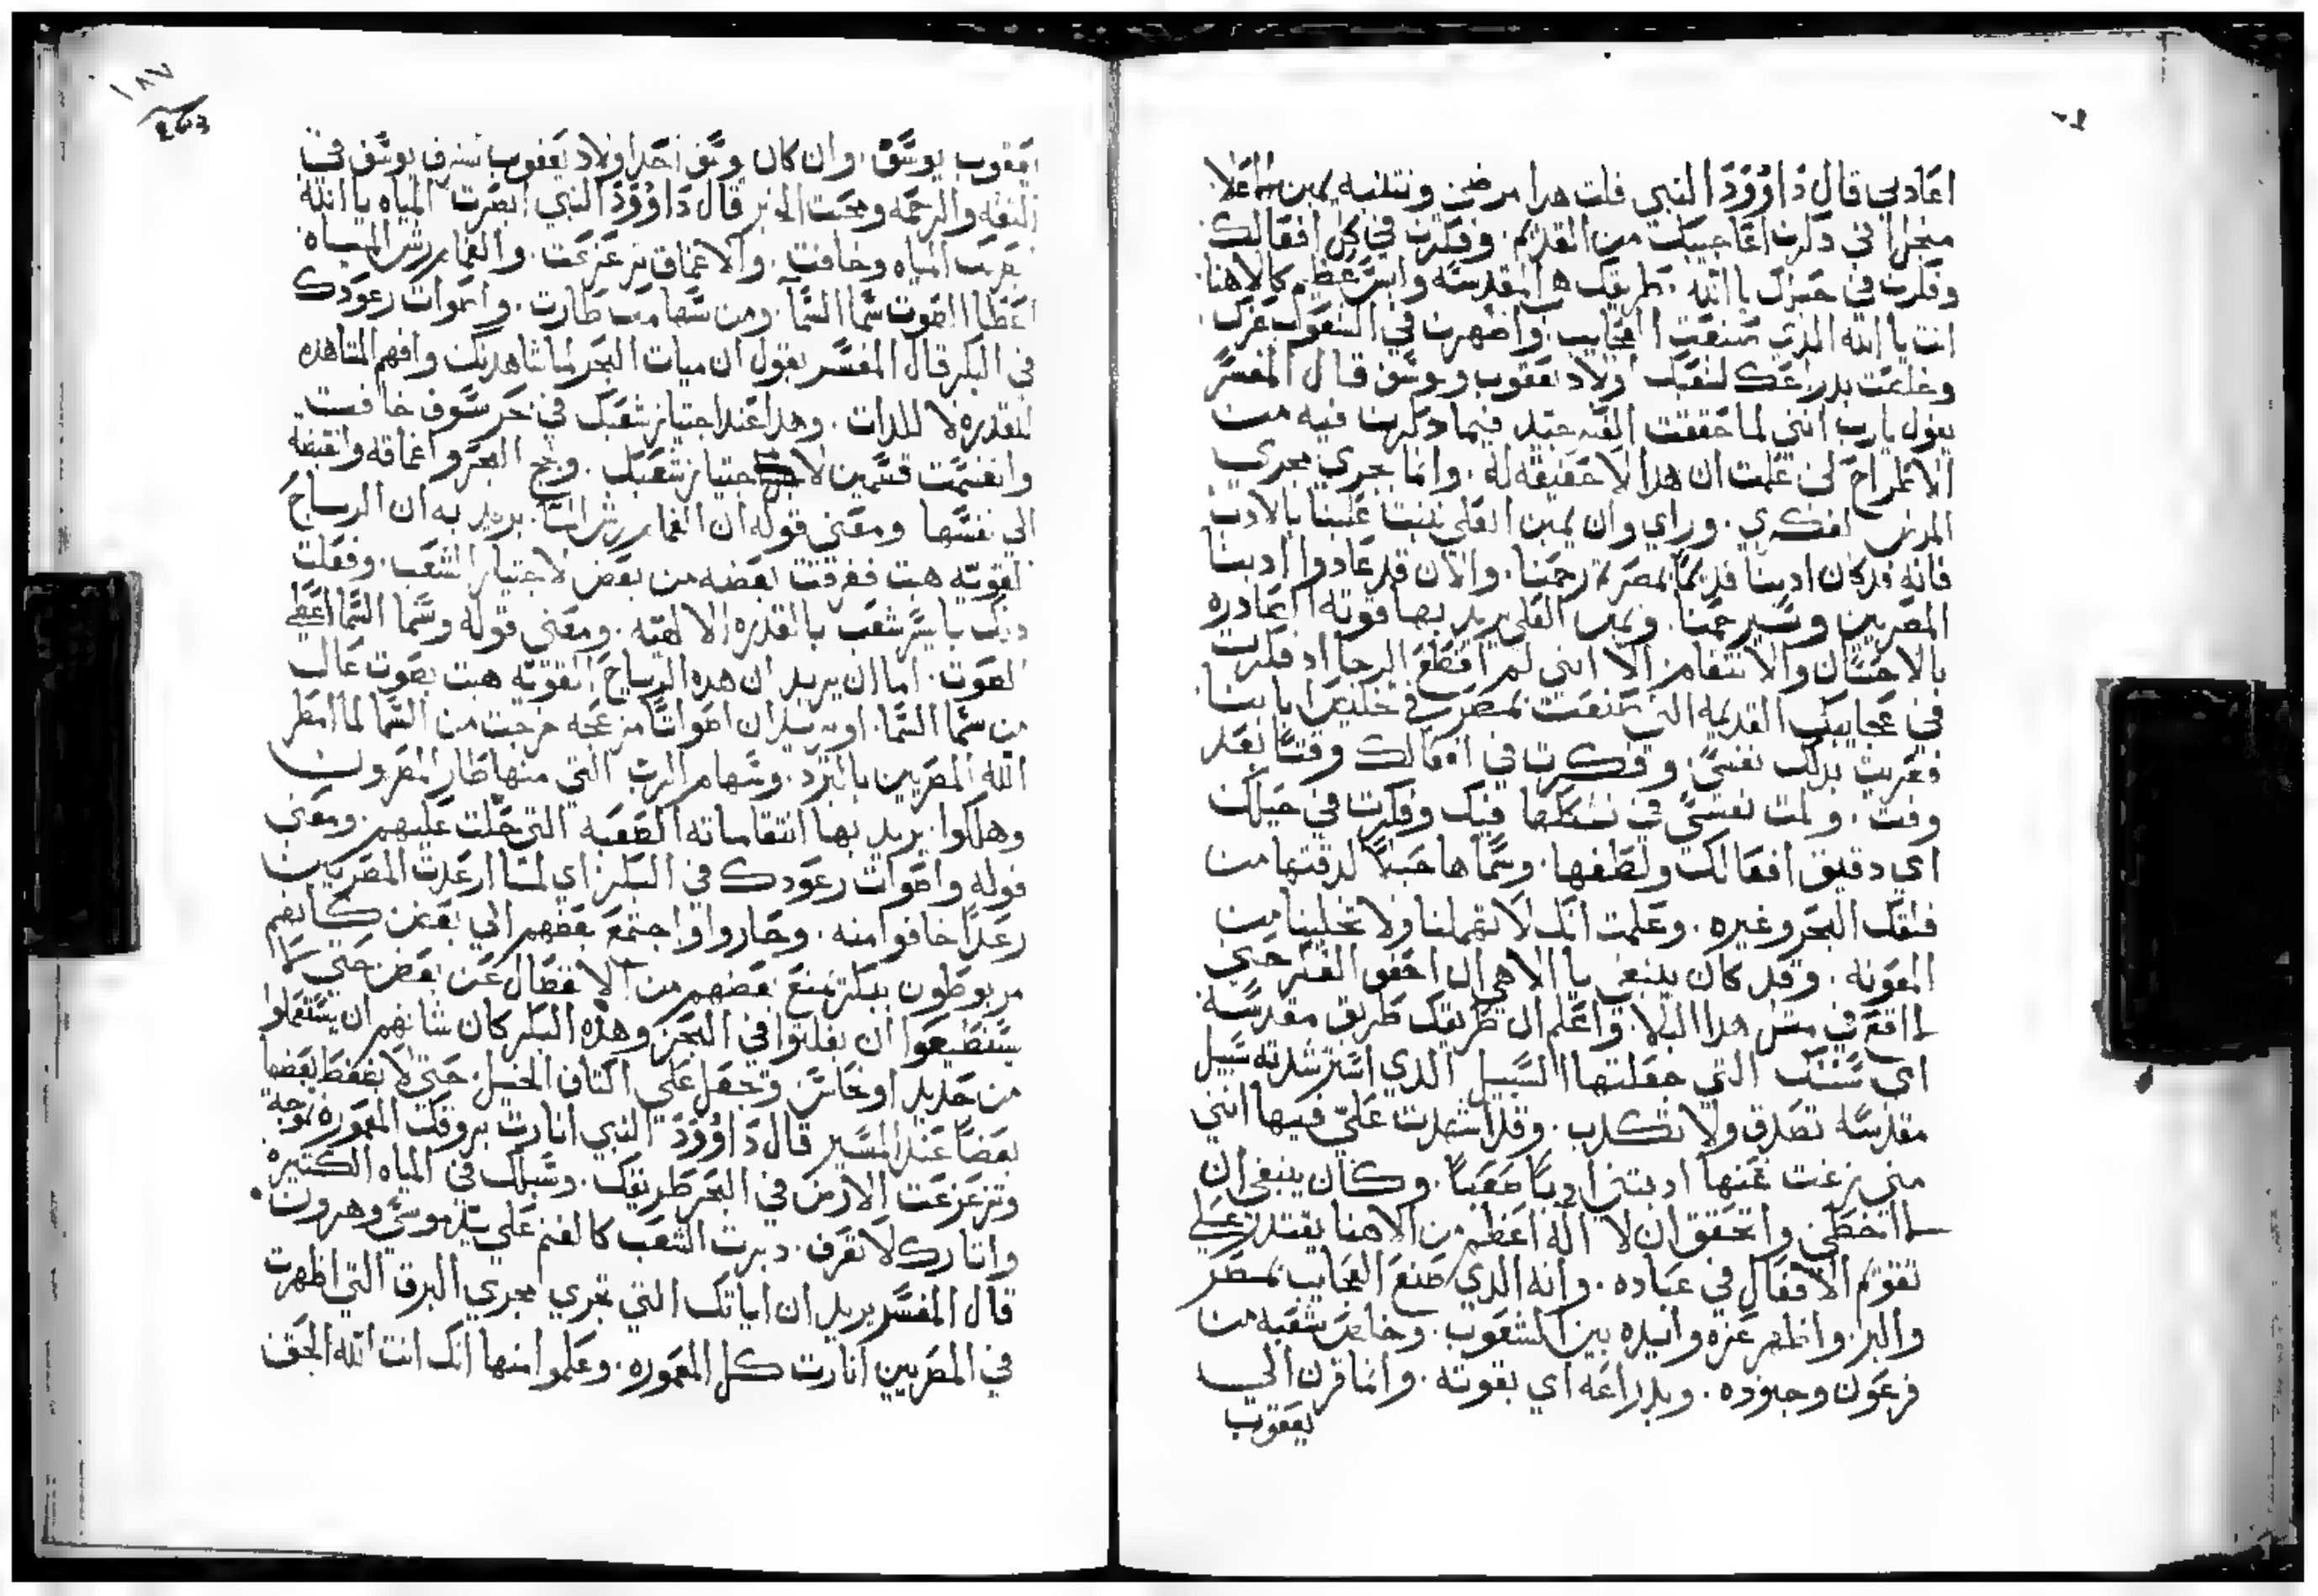 اعادبي قال دَاوُوْدَ النبي قلت هدا مرضي وتتنيه يمين العلا
دكرت اعاجيبك من القديم. وفكرت في كل افعالك
وفكرت في حيلك يا الله. طريقك هي المقدسه وليس عظيم كالاهنا
انت يا الله الدي صنعت العجايب. واظهرت في الشعوب عزك
وخلصت بدراعك لشعبك اولاد يعقوب ويوسف قال المفسر
يقول يارب انني لما حققت الفكر جيد فيما دكرت فيه من
الاطراح لي علمت ان هدا لا حقيقه له. وانما جري مجري
المرض لفكري. وراي وان يمين العلي تثنت علينا بالادب
فانه قد كان ادبنا قديمًا بمصر ثم رحمنا. والان قد عاد وادبنا
المصريين وسيرحمنا. ويمين العلي يريد بها قوته القادره
بالاحسان والانتقام الا انني لم اقطع الرجا اد فكرت
في عجايبك القديمه التي صنعت بمصر في خلاص ابابنا
فعزيت بدلك نفسي. وفكرت في افعالك وقتًا بعد
وقت. ولمت نفسي في تشككها فيك وفكرت في حيلك
اي دقيق افعالك ولطفها. وسماها حيلاً لدقتها من
فلقك البحر وغيره. وعلمت انك لا تهملنا ولا تخلينا من
المعونه. وقد كان ينبغي يا الاهي ان احقق الفكر حتي
لا اقع في متل هدا البلا. واعلم ان طريقك طريق مقدسه
اي سننك التي جعلتها السبيل الدي استرشد به سبيل
مقدسه تصدق ولا تكدب. وقد اشهدت علي فيها انني
متي زغت عنها ادبتني ادبًا صعبًا. وكان ينبغي ان
لا اخطي واتحقق ان لا اله اعظم من الاهنا يقتدر علي
تقويم الافعال في عباده. وانه الدي صنع العجايب بمصر
والبر. واظهر عزه وايده بين الشعوب. وخلص شعبه من
فرعون وجنوده. وبدراعه اي بقوته. وانما قرن الي
يعقوب
١٨٧
يعقوب يوسف. وان كان يوسف احد اولاد يعقوب لشرف يوسف في
العفه والرحمه ومحبت الخير قال دَاوُوْدَ النبي ابصرت المياه يا الله
ابصرت المياه وخافت. والاعماق تزعزعت. والغمام رش المياه
اعطا الصوت سما السما. ومن سهامك طارت. واصوات رعودك
في البكر قال المفسر يقول ان ميات البحر لما شاهدتك وافهم المشاهده
للقدره لا للدات. وهدا عند اجتياز شعبك في بحر سوف خافت
وانقسمت قسمين لاجل اجتياز شعبك. ولج البحر واعماقه وانقبضه
الي نفسها ومعني قوله ان الغمام رش الما. يريد به ان الرياح
القويه هبت ففرقت بعضه من بعض لاجتياز الشعب. وفعلت
دلك ياسر شعب بالقدره الالاهيه. ومعني قوله وسما السما اعطي
الصوت. اما ان يريد ان هده الرياح القويه هبت بصوت عال
من سما السما. او يريد ان اصواتًا مزعجه خرجت من السما لما امطر
الله المصريين بالبرد. وسهام الرب التي منها طار المصرون
وهلكوا. يريد بها انتقاماته الصعبه التي حلت عليهم. ومعني
قوله واصوات رعودك في البكر. اي لما ارعدت المصريين
رعدًا خافوا منه. وحاروا واجتمع بعضهم الي بعض كانهم
مربوطون ببكر تمنع بعضهم من الانفصال عن بعض حتي لا
يستطيعوا ان يفلتوا في البحر. وهذه البكر كان شانهم ان يستعملوا
من حديد او نحاس وتجعل علي اكتاف الخيل. حتي لا يضغط بعضها
بعضًا عند المسير قال دَاوُوْدَ النبي انارت بروقك المعموره
وتزعزعت الارض في البحر طريقك. وسبلك في المياه الكتيره
واتارك لا تعرف. دبرت الشعب كالغنم علي يد موسي وهرون.
قال المفسر يريد ان اياتك التي تجري مجري البرق التي اظهرت
في المصريين انارت كل المعموره. وعلموا منها انك انت الله الحق